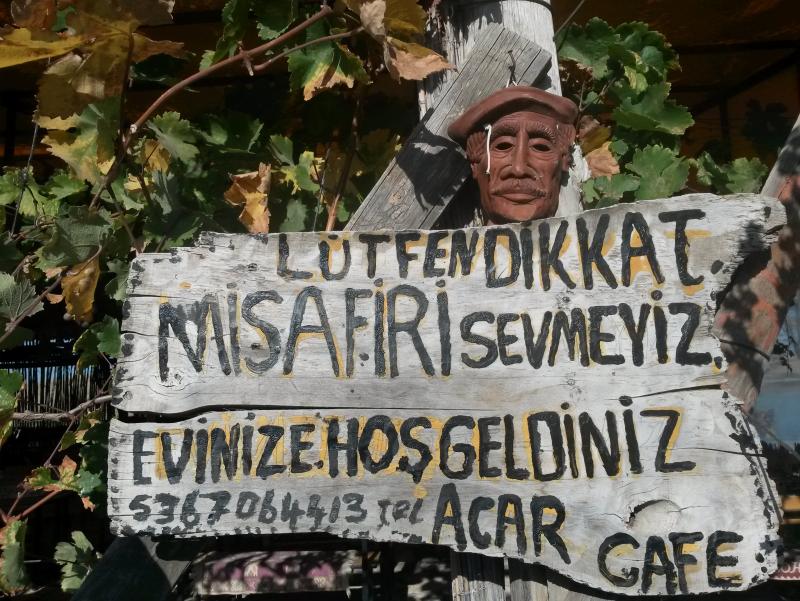 LÜTFEN DİKKAT.
MİSAFİRİ SEVMEYİZ.
EVİNİZE. HOŞ GELDİNİZ
5367064413 TEL ACAR
CAFE